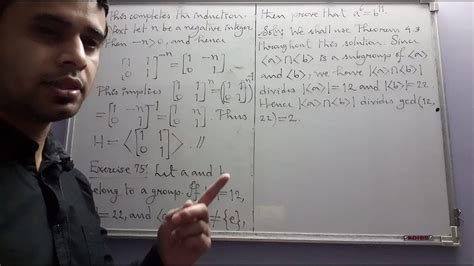 This completes the induction.
Next let n be a negative integer.
Then -n>0, and hence
[1 1; 0 1]^{-n} = [1 -n; 0 1].
This implies
= [1 n; 0 1]. Thus
H = <[1 1; 0 1]>. //
Exercise 75: Let a and b
belong to a group. If = 12,
= 22, and ≠ {e},
then prove that a⁶ = b¹¹.
Soln: We shall use Theorem 4.3
throughout this solution. Since
<a>∩<b> is a subgroup of <a>
and <b>, we have |<a>∩<b>|
divides |<a>| = 12 and |<b>| = 22.
Hence |<a>∩<b>| divides gcd(12,
22) = 2.